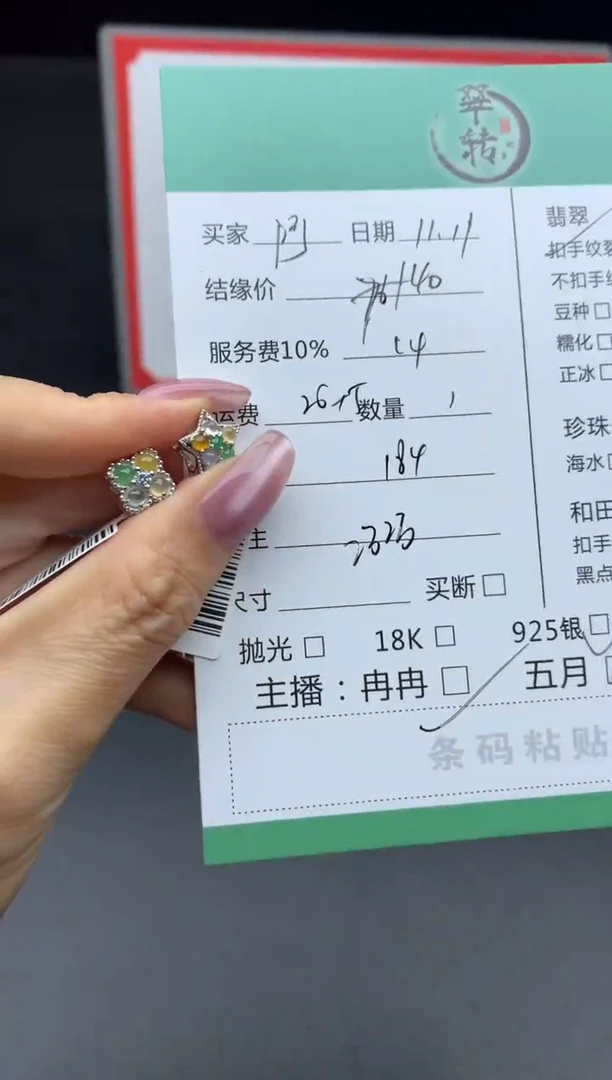 翠
转
买家 闪 日期 11.11
结缘价 140
服务费10% 14
运费 26 数量 1
184
主
尺寸 买断
抛光 18K 925银
主播：冉冉 五月
条码粘贴
翡翠
扣手纹裂
不扣手纹
豆种
糯化
正冰
珍珠
海水
和田
扣手
黑点